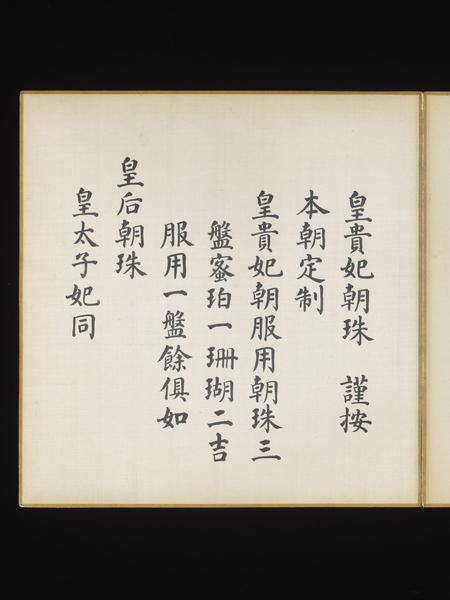 皇貴妃朝珠　謹按
本朝定制
皇貴妃朝服用朝珠三
盤蜜珀一珊瑚二吉
服用一盤餘俱如
皇后朝珠
皇太子妃同